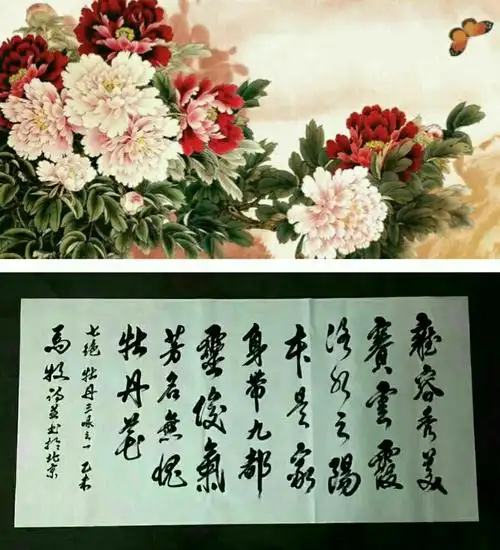 雍容秀美
賽雲霞
洛水之陽
本是家
身帶九都
靈俊氣
芳名無愧
牡丹花
七绝 牡丹三咏之一 乙未
馬牧诗並书於北京